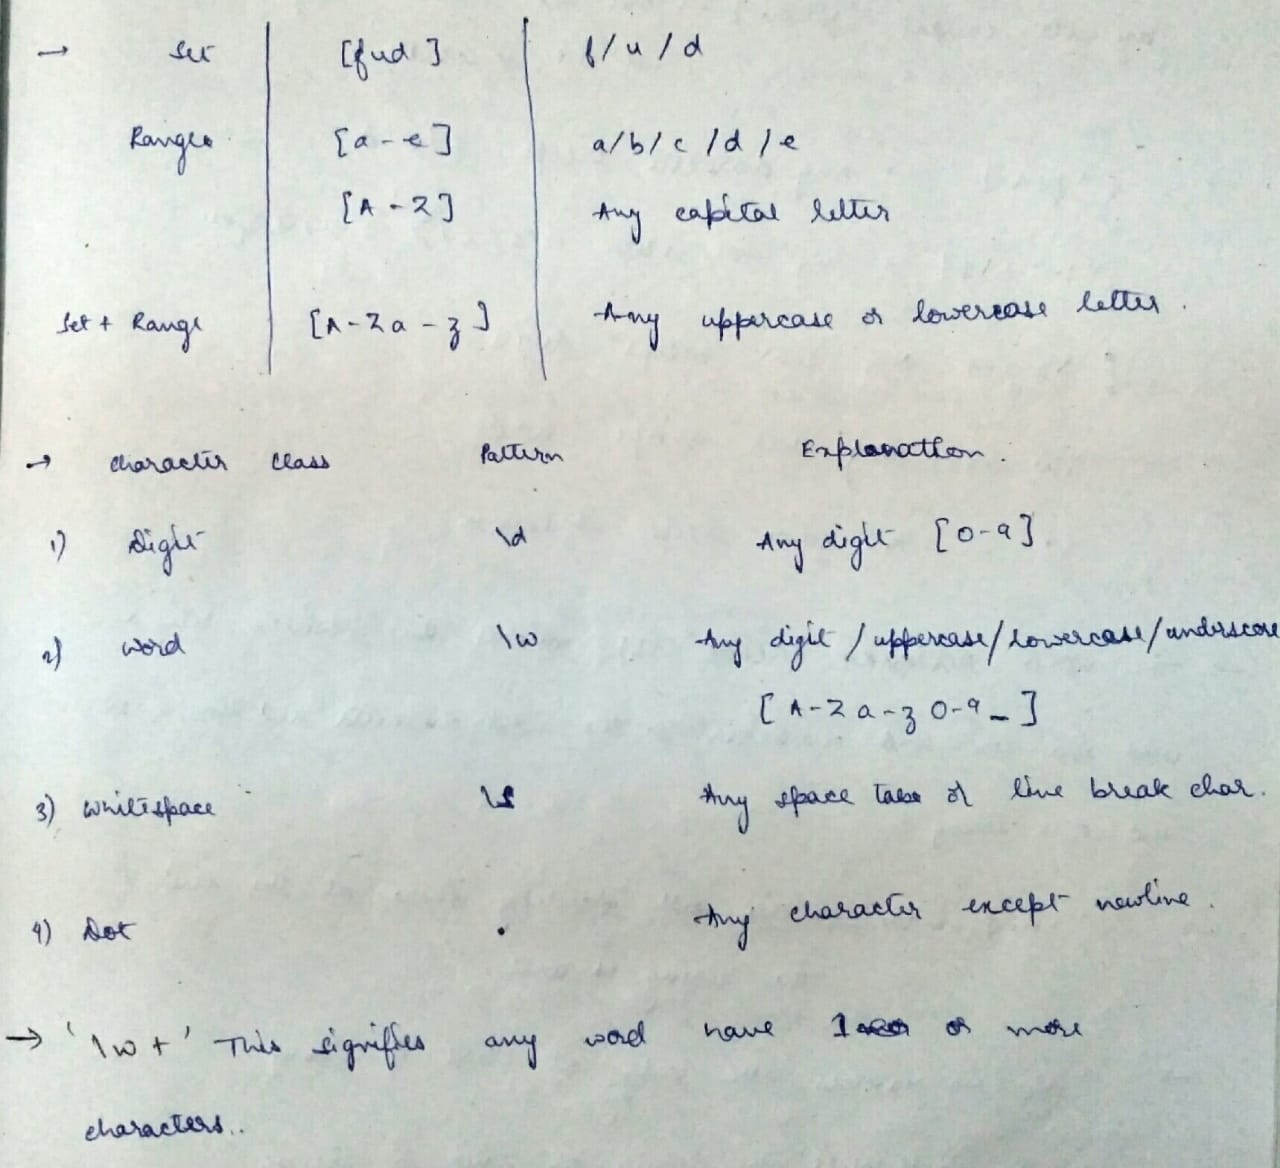 → Set [fud] f/u/d
Ranges [a-e] a/b/c/d/e
[A-Z] Any capital letter
Set + Range [A-Za-z] Any uppercase or lowercase letter.
→ character class Pattern Explanation.
1) Digit \d Any digit [0-9]
2) word \w Any digit/uppercase/lowercase/underscore
[A-Za-z0-9_]
3) whitespace \s Any space tabs or line break char.
4) Dot . Any character except newline.
→ '\w+' This signifies any word have 1 or more
characters..